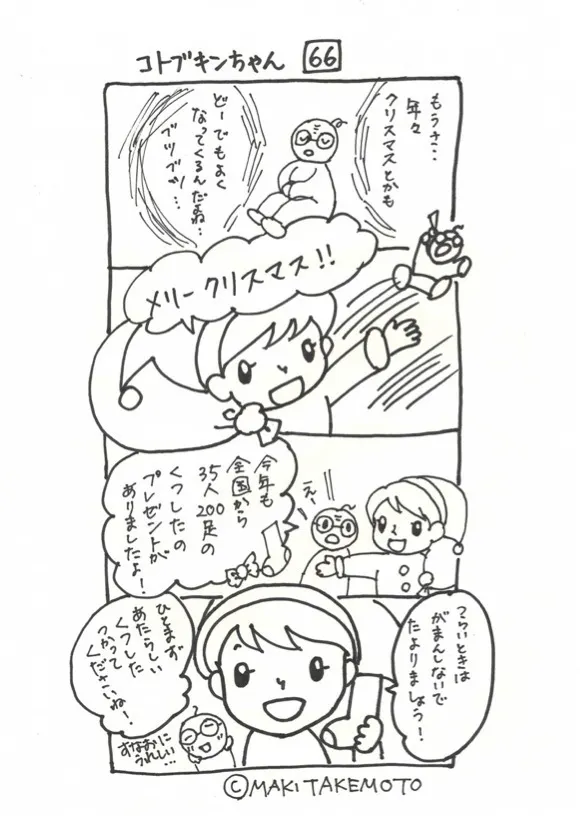 コトブキンちゃん 66
もうさ…
年々
クリスマスとかも
どーでもよく
なってくるんだよね…
ブツブツ…
メリークリスマス!!
今年も
全国から
35人200足の
くつしたの
プレゼントが
ありましたよ!
え、
つらいときは
がまんしないで
たよりましょう!
ひとまず
あたらしい
くつした
つかって
くださいね!
すなおに
うれしい…
©MAKI TAKEMOTO